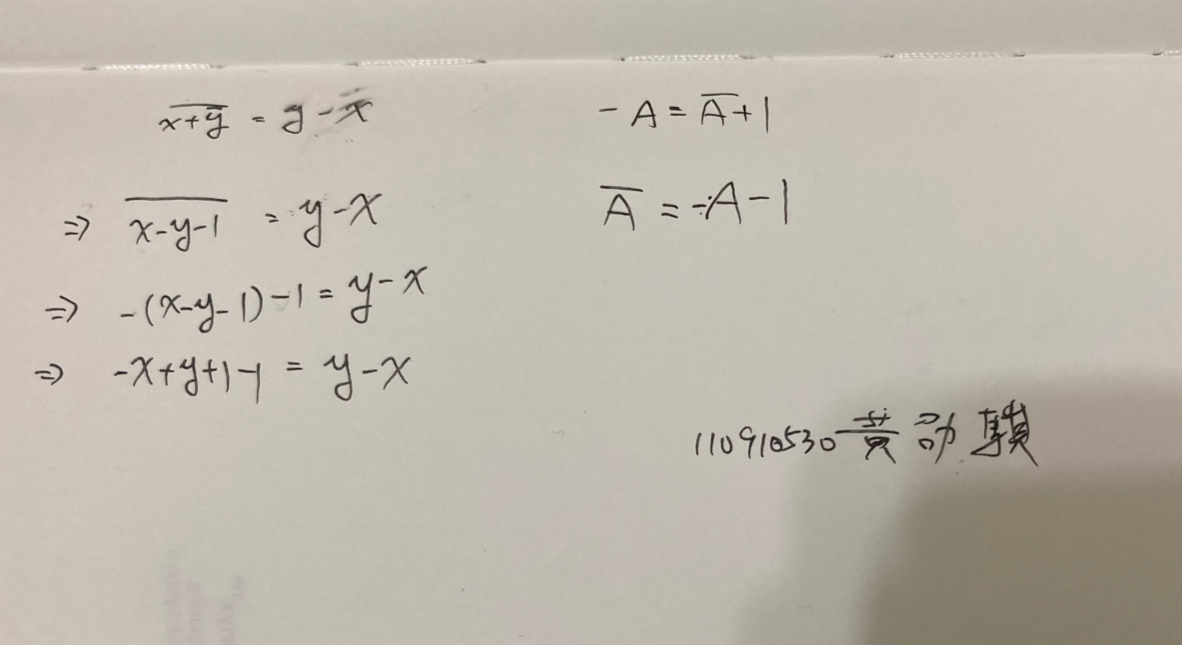 $\overline{x+\overline{y}} = y-x$
$\Rightarrow \overline{x-y-1} = y-x$
$\Rightarrow -(x-y-1)-1 = y-x$
$\Rightarrow -x+y+1-1 = y-x$
$-A = \overline{A}+1$
$\overline{A} = -A-1$
110910530 黃